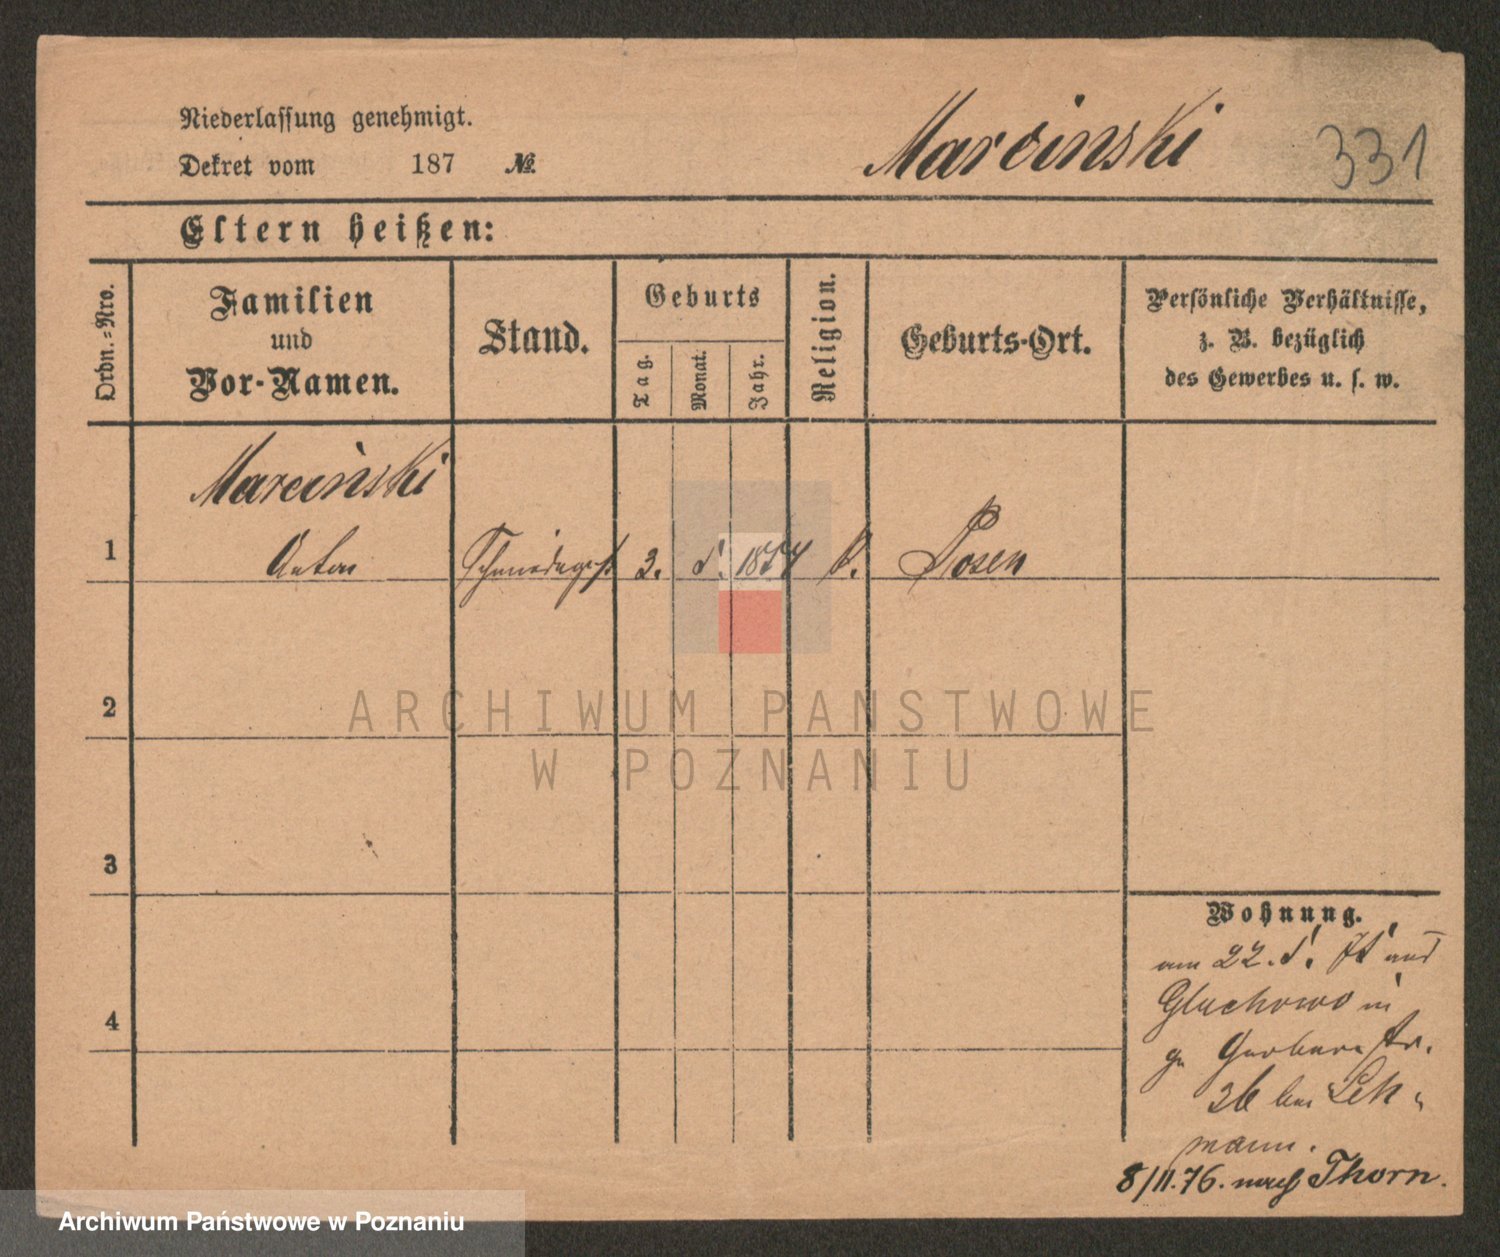 Niederlassung genehmigt.
Dekret vom 187 №
Marcinski 331
Eltern heißen:
Ordn.-Nro.
Familien
und
Vor-Namen.
Stand.
Geburts
Tag.
Monat.
Jahr.
Religion.
Geburts-Ort.
Persönliche Verhältnisse,
z. B. bezüglich
des Gewerbes u. s. w.
Marcinski
1 Anton Schmiedeges. 3. 5. 1854 k. Posen
2
ARCHIWUM PANSTWOWE
W POZNANIU
3
Wohnung.
am 22. aus
Gluchowo in
4
Gerberstr.
36 bei Leh-
mann.
8/11.76. nach Thorn.
Archiwum Państwowe w Poznaniu